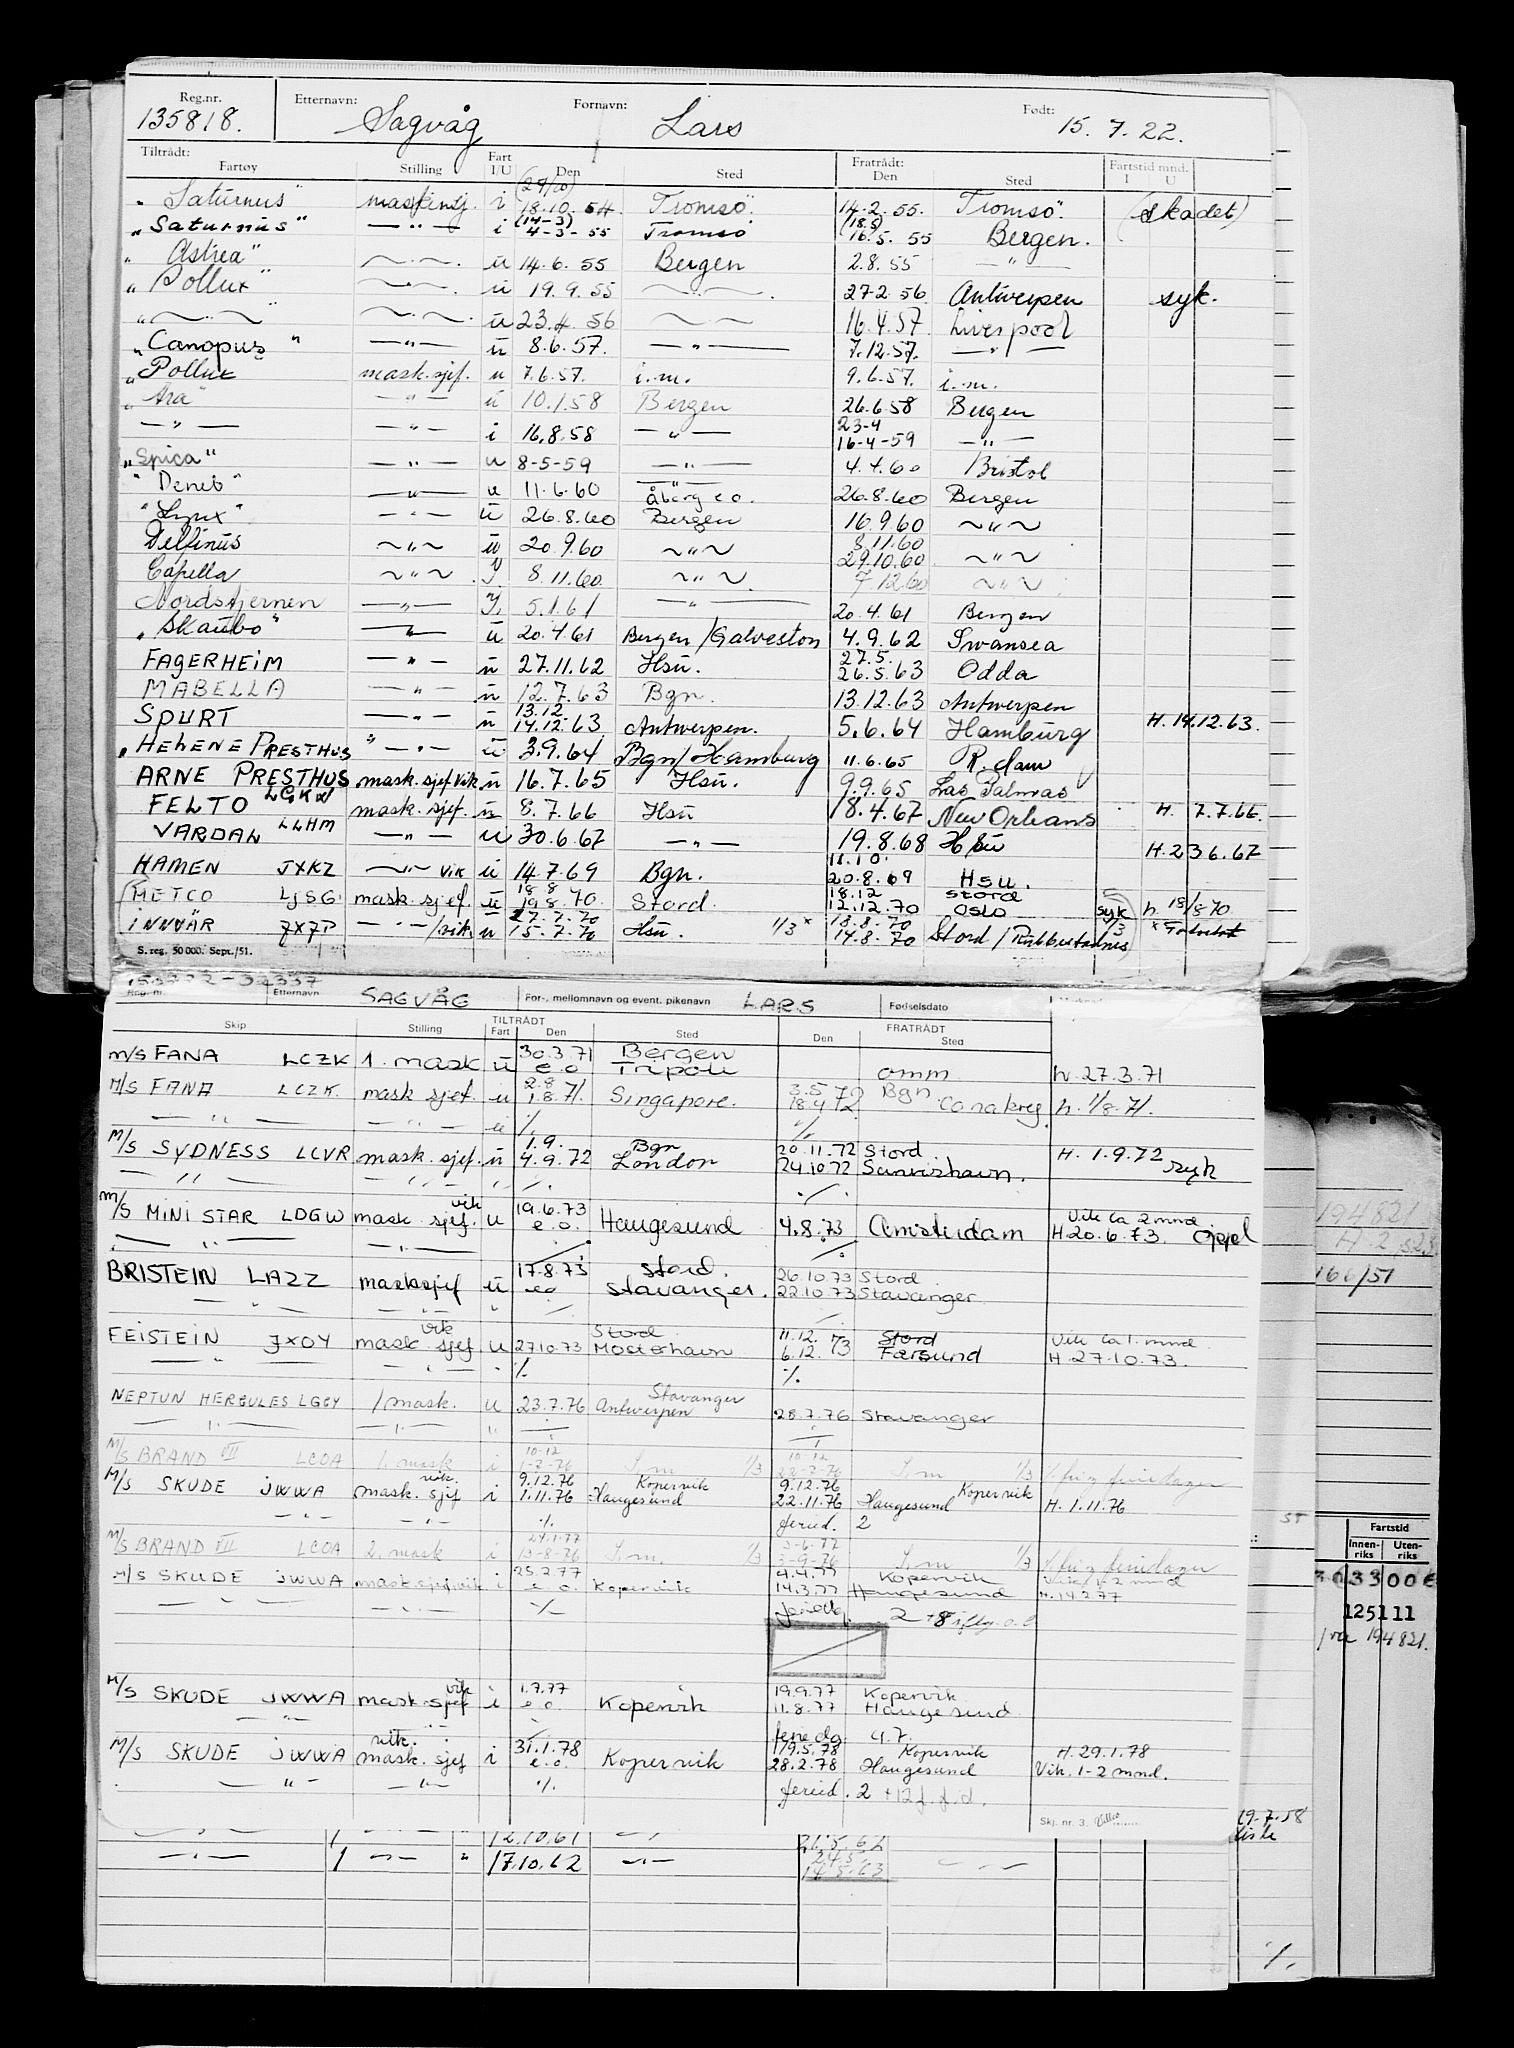 Reg.nr. Etternavn: Fornavn: Født:
135818. Sagvåg Lars 15.7.22.
Tiltrådt: Fart Fratrådt: Fartstid mnd.
Fartøy Stilling I/U Den Sted Den Sted I U
(29/10)
"Saturnus" maskinsj. i 18.10.54. Tromsö. 14.2.55. Tromsö. (skadet)
(14-3) (18.5)
"Saturnus" — " — i 4-3-55 Tromsö 16.5.55 Bergen.
"Astrea" — " — u 14.6.55 Bergen 2.8.55 — " —
"Pollux" — " — u 19.9.55 — " — 27.2.56 Antwerpen syk.
" — " — " — " — u 23.4.56 — " — 16.4.57. Liverpool
"Canopus" — " — u 8.6.57. — " — 7.12.57. — " —
"Pollux mask.sjef. u 7.6.57. i.m. 9.6.57. i.m.
"Ara" — " — u 10.1.58 Bergen 26.6.58 Bergen
23-4
— " — — " — i 16.8.58 — " — 16-4-59 — " —
"Spica" — " — u 8-5-59 — " — 4.4.60 Bristol
"Deneb" — " — u 11.6.60 Åberg e.o. 26.8.60 Bergen
"Lynx" — " — u 26.8.60 Bergen 16.9.60 — " —
8.11.60
Delfinus — " — u 20.9.60 — " — 29.10.60 — " —
Capella — " — 8.11.60 — " — 7.12.60 — " —
Nordstjernen — " — 5.1.61 — " — 20.4.61 Bergen
"Skaubo" — " — u 20.4.61 Bergen/Galveston 4.9.62 Swansea
27.5.
FAGERHEIM — " — u 27.11.62 Hsu. 26.5.63 Odda
MABELLA — " — u 12.7.63 Bgn. 13.12.63 Antwerpen
13.12.
SPURT — " — u 14.12.63 Antwerpen. 5.6.64 Hamburg H.14.12.63.
"HELENE PRESTHUS" — " — u 3.9.64 Bgn/Hamburg 11.6.65 R.dam
ARNE PRESTHUS mask.sjef vik. u 16.7.65 Hsu. 9.9.65 Las Palmas
FELTO mask.sjef. u 8.7.66 Hsu 18.4.67 New Orleans H. 7.7.66.
VARDAL LLHM — " — u 30.6.67 — " — 19.8.68 Hsu H.23 6.67
11.10.
HAMEN JXKZ — " — vik u 14.7.69 Bgn. 20.8.69 Hsu.
18.8 18.12 Stord
METCO LJSG. mask.sjef. u 19.8.70. Stord. 12.12.70 Oslo syk h 18/8 70
27.7.70 18.8.70
INNVÄR JXJP — " —/vik. u 15.7.70 Hsu. 1/3 x 14.8.70 Stord/Rubbestadnes 1/3
S. reg. 50 000. Sept./51.
Reg. nr. Etternavn SAGVÅG For-, mellomnavn og event. pikenavn LARS Fødselsdato
TILTRÅDT FRATRÅDT
Skip Stilling Fart Den Sted Den Sted
30.3.71 Bergen
M/S FANA LCZK 1. mask u e.o Tripoli omm h. 27.3.71
2.8 3.5.72 Bgn.
M/S FANA LCZK. mask sjef. u 1.8.71. Singapore. 18.4.72 Conakry h. 1/8.71.
— " — — " — u ./. ./.
1.9. Bgn 20.11.72 Stord
M/S SYDNESS LCVR mask.sjef. u 4.9.72 London 24.10.72 H. 1.9.72 syk
— " — — " — " ./. ./.
vik 19.6.73 Vik ca 2 mnd.
M/S MINI STAR LDGW mask. sjef. u e.o. Haugesund 4.8.73 Amsterdam H.20.6.73. Oppl
— " — — " — ./. ./.
17.8.73 Stord. 26.10.73 Stord
BRISTEIN LAZZ masksjef u eo Stavanger. 22.10.73 Stavanger
— " — — " — " ./. ./.
vik Stord 11.12. Stord Vik ca 1. mnd
FEISTEIN JXOY mask sjef u 27.10.73 Mosterhavn 6.12.73 Farsund H.27.10.73.
— " — — " — " ./. ./.
Stavanger
NEPTUN HERCULES LGCY 1 mask. u 23.7.76 Antwerpen 28.7.76 Stavanger
— " — — " — " ./. ./.
10-12 10-12
M/S BRAND VII LCOA 1. mask i 1-2-76 I.m 1/3 I.m 1/3
vik. 9.12.76 Kopervik 9.12.76 Kopervik
M/S SKUDE JWWA mask. sjef i 1.11.76 Haugesund 22.11.76 Haugesund H. 1.11.76
— " — — " — ./. feried. 2
24.1.77 3-6-77
M/S BRAND VII LCOA 2. mask i 13-8-76 I.m. 1/3 3-9-76 I.m 1/3
25.2.77 4.4.77 Kopervik
M/S SKUDE JWWA mask sjef vik i e.o. Kopervik 14.3.77 Haugesund H.14.2.77
— " — — " — ./. feriedg. 2
vik 1.7.77 19.9.77 Kopervik
M/S SKUDE JWWA mask.sjef i e.o. Kopervik 11.8.77 Haugesund
— " — feriedg 47.
vik. 31.1.78 19.5.78 Kopervik H.29.1.78
M/S SKUDE JWWA mask. sjef i e.o. Kopervik 28.2.78 Haugesund Vik. 1-2 mnd.
— " — — " — ./. feried. 2 +12 f.f.d.
Skj. nr. 3.
— " — 12.10.61 — " — 21.5.62
24.5.
— " — — " — " 17.10.62 — " — 14.5.63 — " —
19.7.58
liste
./.
194821
166/51
ST
Fartstid
Innenriks Utenriks
125111
fra 194821.